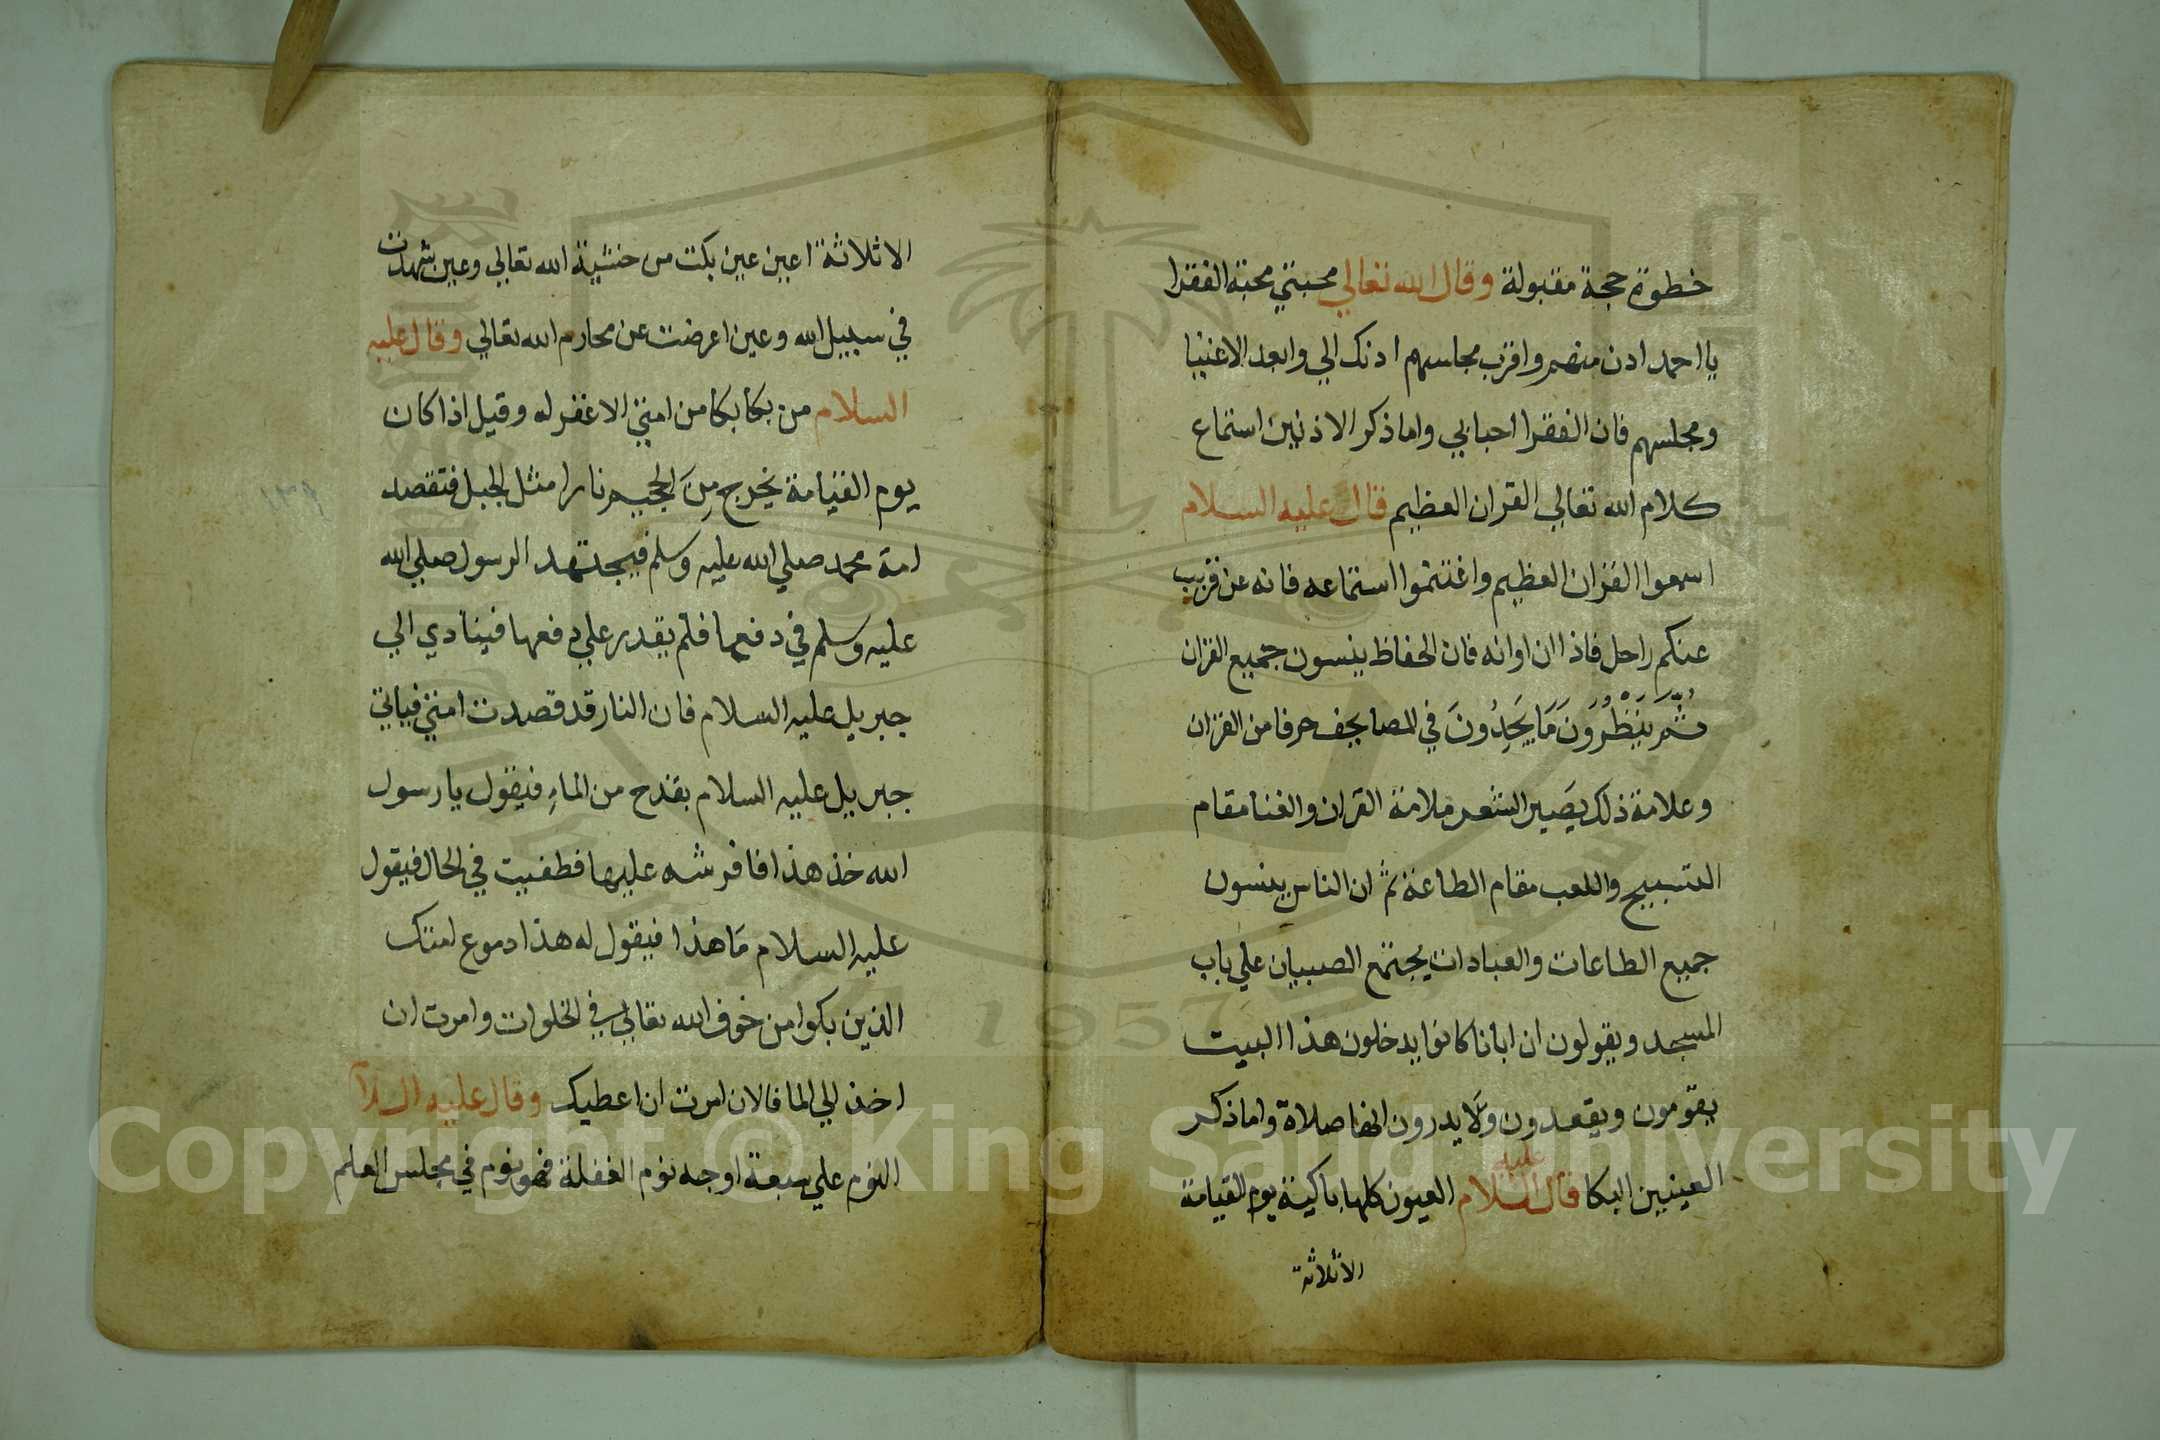 خطوة حجة مقبولة وقال الله تعالي محبتي محبة الفقرا
يا احمد ادن منهم واقرب مجلسهم ادنك الي وابعد الاغنيا
ومجلسهم فان الفقرا احبابي واما ذكر الاذنين استماع
كلام الله تعالي القران العظيم قال عليه السلام
اسمعوا القران العظيم واغتنموا استماعه فانه عن قريب
عنكم راحل فاذا ان اوانه فان الحفاظ ينسون جميع القران
ثُمَّ يَنْظُرُونَ مَا يَجِدُونَ في المصاحف حرفا من القران
وعلامة ذلك يصَير الشعر ملامة القران والغنا مقام
التسبيح واللعب مقام الطاعة ثم ان الناس ينسون
جميع الطاعات والعبادات يجتمع الصبيان علي باب
المسجد ويقولون ان ابانا كانوا يدخلون هذا البيت
يقومون ويقعدون وَلَا يدرون انها صلاة واما ذكر
العينين البكا قال عليه السلام العيون كلها باكية يوم القيامة
الاثلاثة
الاثلاثة اعين عين بكت من خشية الله تعالي وعين شهدت
في سبيل الله وعين اعرضت عن محارم الله تعالي وقال عليه
السلام من بكا بكا من امتي الا غفر له وقيل اذا كان
يوم القيامة يخرج مِنَ الجحيم نارا مثل الجبل فتقصد
امة محمد صلي الله عليه وسلم فيجتهد الرسول صلي الله
عليه وسلم في دفعها فلم يقدر علي دفعها فينادي الي
جبريل عليه السلام فان النار قد قصدت امتي فياتي
جبريل عليه السلام بقدح من الماءِ فيقول يا رسول
الله خذ هذا فافرشه عليها فطفيت في الحال فيقول
عليه السلام مَا هذا فيقول له هذا دموع امتك
الذين بكوا من خوف الله تعالي في الخلوات وامرت ان
اخذ الي الما فالان امرت ان اعطيك وقال عليه السلا
النوم علي سبعة اوجه نوم الغفلة فهو نوم في مجلس العلم
Copyright © King Saud University
1957